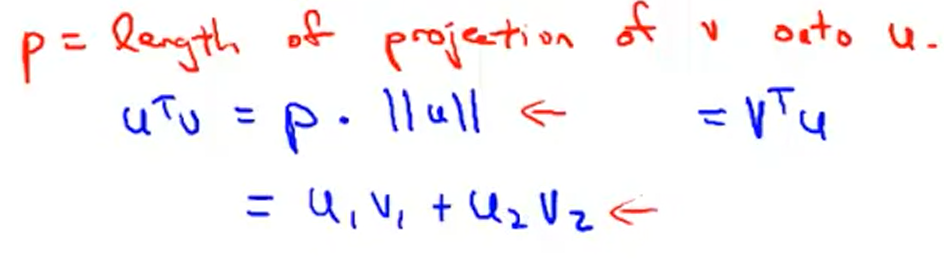 p = length of projection of v onto u.
uᵀv = p · ||u|| ← = vᵀu
= u₁v₁ + u₂v₂ ←